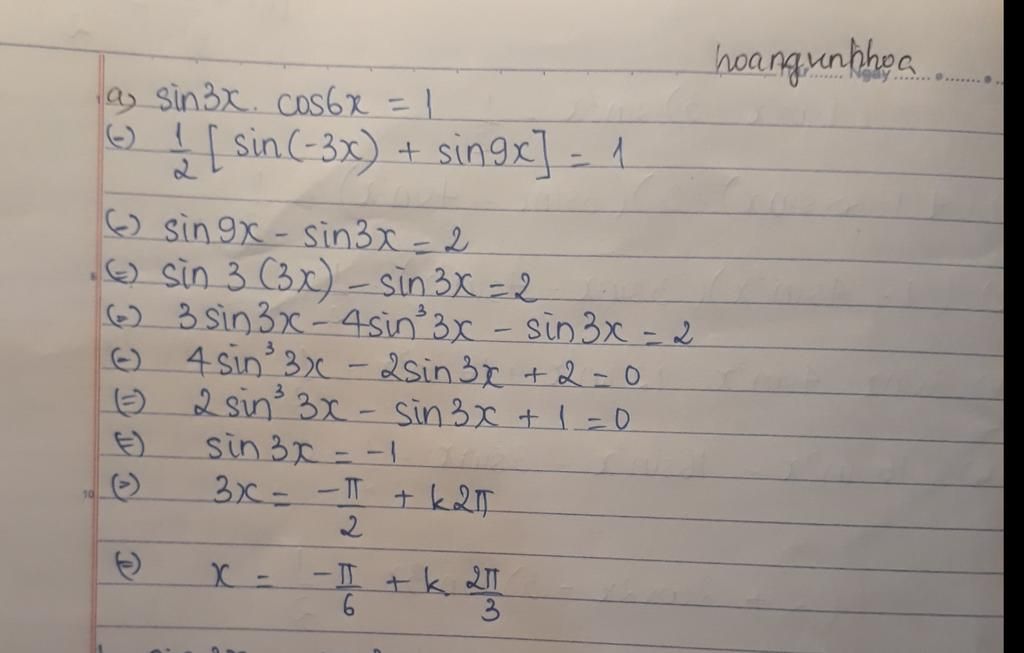 hoangvnhhoa
Ngày
a) sin3x. cos6x = 1
(=) 1/2 [ sin(-3x) + sin9x] = 1
(=) sin9x - sin3x = 2
(=) sin 3 (3x) - sin3x = 2
(=) 3sin3x - 4sin³3x - sin3x = 2
(=) 4sin³3x - 2sin3x + 2 = 0
(=) 2sin³3x - sin3x + 1 = 0
(=) sin3x = -1
10 (=) 3x = -π/2 + k2π
(=) x = -π/6 + k. 2π/3